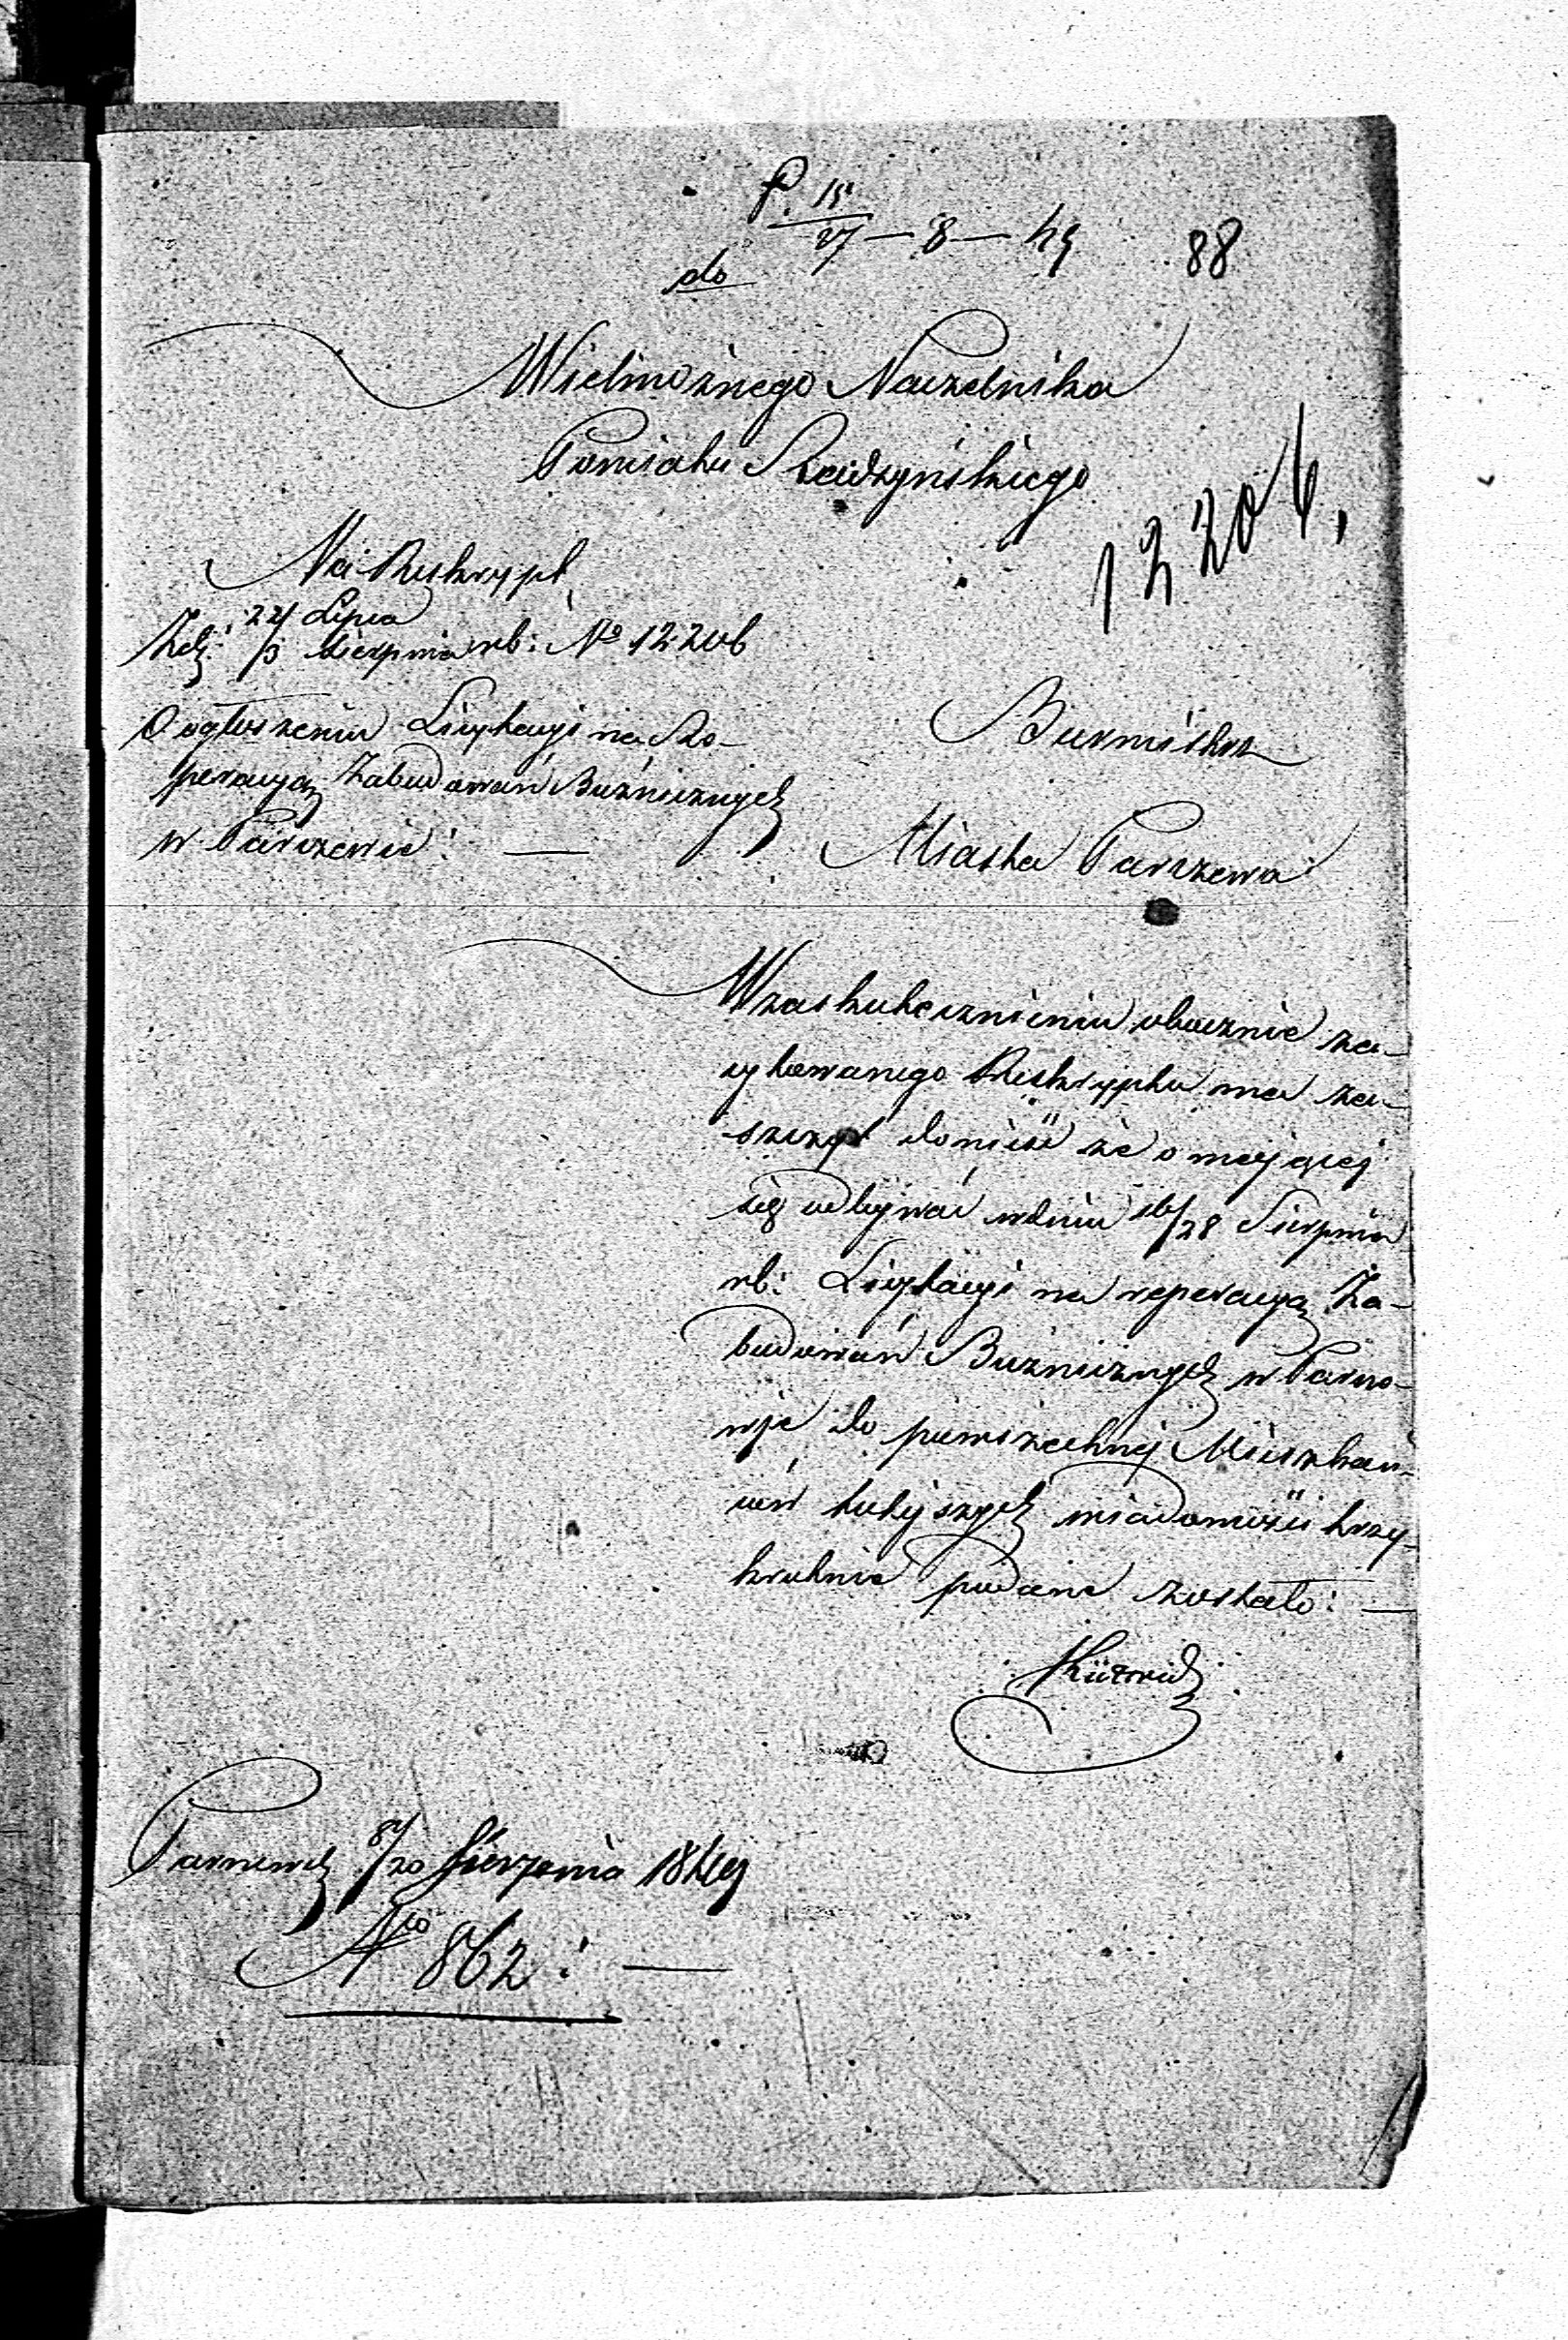 P. 15/27 — 8 — 49
88
do
Wielmożnego Naczelnika
Powiatu Radzyńskiego
12206,
Na Reskrypt
Zdj: 22/3 Lipca Sierpnia rb: No 12206
O ogłoszeniu Licytacyi na Re-
peracyą Zabudowań Bużniczych
w Parczewie: —
Burmistrz
Miasta Parczewa
W zaskutecznieniu obocznie za-
cytowanego Reskryptu ma za-
szczyt donieść że o mającej
się odbywać w dniu 16/28 Sierpnia
rb: Licytacyi na reperacyą Za-
budowań Bużniczych w Parcze-
wie do powszechnej Mieszkań-
ców tutejszych wiadomości trzy-
krotnie podane zostało: —
Parczew d 8/20 Sierpnia 1849
No 862: —